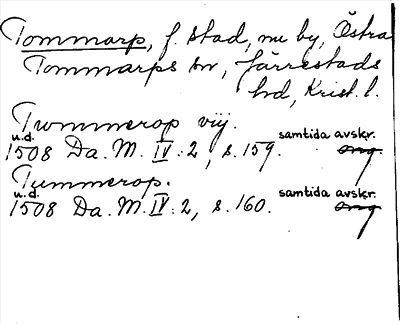 Tommarp, f. stad, nu by, Östra
Tommarps sn, Järrestads
hd, Krist. l.
Twmmerop vij.
u.d. samtida avskr.
1508 Da. M. IV:2, s. 159. orig
Tummerop.
u.d. samtida avskr.
1508 Da. M. IV:2, s. 160. orig